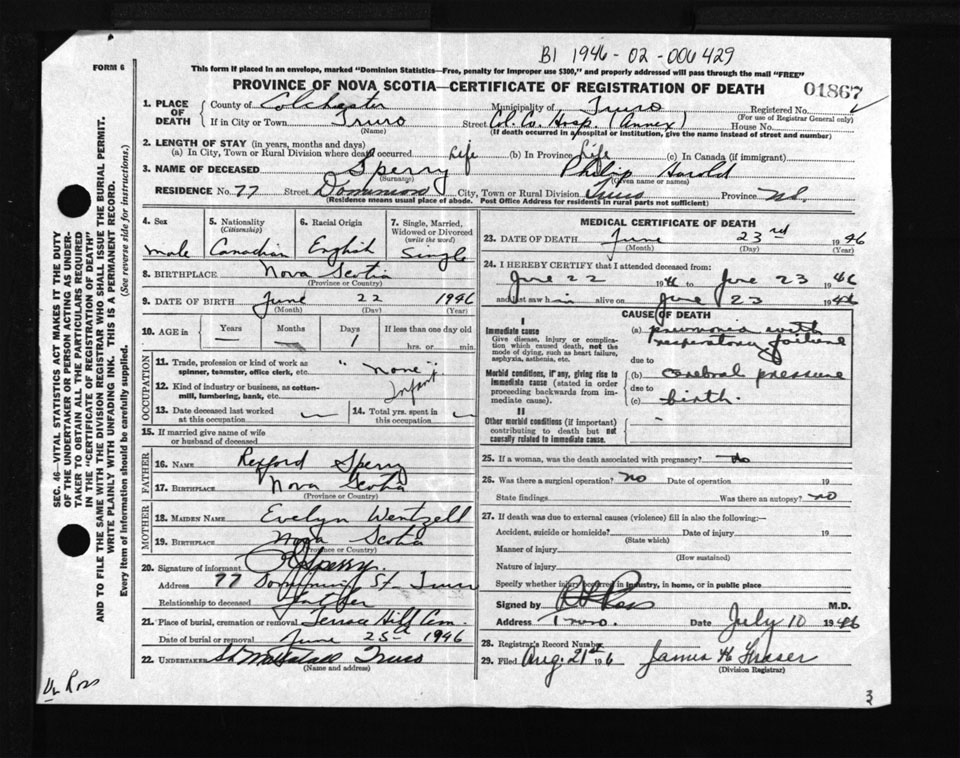 B1 1946-02-006429
FORM 6
This form if placed in an envelope, marked "Dominion Statistics—Free, penalty for improper use $300," and properly addressed will pass through the mail "FREE"
PROVINCE OF NOVA SCOTIA—CERTIFICATE OF REGISTRATION OF DEATH
01867
1. PLACE OF DEATH { County of Colchester Municipality of Truro Registered No.
(For use of Registrar General only)
If in City or Town Truro Street Col. Co. Hosp. (Annex) House No.
(Name) (If death occurred in a hospital or institution, give the name instead of street and number)
2. LENGTH OF STAY (in years, months and days)
(a) In City, Town or Rural Division where death occurred Life (b) In Province Life (c) In Canada (if immigrant)
3. NAME OF DECEASED Sperry Philip Harold
(Surname) (Given name or names)
RESIDENCE No. 77 Street Dominion City, Town or Rural Division Truro Province N.S.
(Residence means usual place of abode. Post Office Address for residents in rural parts not sufficient)
4. Sex
male
5. Nationality
(Citizenship)
Canadian
6. Racial Origin
English
7. Single, Married, Widowed or Divorced
(write the word)
Single
8. BIRTHPLACE Nova Scotia
(Province or Country)
9. DATE OF BIRTH June 22 1946
(Month) (Day) (Year)
10. AGE in { Years Months Days If less than one day old
— — 1 hrs. or min.
OCCUPATION
11. Trade, profession or kind of work as spinner, teamster, office clerk, etc. "none"
12. Kind of industry or business, as cotton-mill, lumbering, bank, etc. Infant
13. Date deceased last worked at this occupation —
14. Total yrs. spent in this occupation —
15. If married give name of wife or husband of deceased
FATHER
16. NAME Rexford Sperry
17. BIRTHPLACE Nova Scotia
(Province or Country)
MOTHER
18. MAIDEN NAME Evelyn Wentzell
19. BIRTHPLACE Nova Scotia
(Province or Country)
20. Signature of informant R Sperry
Address 77 Dominion St Truro
Relationship to deceased father
21. Place of burial, cremation or removal Terrace Hill Cem.
Date of burial or removal June 25 1946
22. UNDERTAKER Truro
(Name and address)
Dr Ross
MEDICAL CERTIFICATE OF DEATH
23. DATE OF DEATH June 23rd 1946
(Month) (Day) (Year)
24. I HEREBY CERTIFY that I attended deceased from:
June 22 1946 to June 23 1946
and last saw him alive on June 23 1946
CAUSE OF DEATH
I
Immediate cause
Give disease, injury or complication which caused death, not the mode of dying, such as heart failure, asphyxia, asthenia, etc.
(a) pneumonia with respiratory failure
due to
Morbid conditions, if any, giving rise to immediate cause (stated in order proceeding backwards from immediate cause).
(b) cerebral pressure
due to
(c) birth.
II
Other morbid conditions (if important) contributing to death but not causally related to immediate cause.
25. If a woman, was the death associated with pregnancy? no
26. Was there a surgical operation? no Date of operation 19
State findings Was there an autopsy? no
27. If death was due to external causes (violence) fill in also the following:—
Accident, suicide or homicide? Date of injury 19
(State which)
Manner of injury
(How sustained)
Nature of injury
Specify whether injury occurred in industry, in home, or in public place
Signed by Ross M.D.
Address Truro. Date July 10 1946
28. Registrar's Record Number
29. Filed Aug. 21st 1946 James H Fraser
(Division Registrar)
3
SEC. 46—VITAL STATISTICS ACT MAKES IT THE DUTY
OF THE UNDERTAKER OR PERSON ACTING AS UNDER-
TAKER TO OBTAIN ALL THE PARTICULARS REQUIRED
IN THE "CERTIFICATE OF REGISTRATION OF DEATH"
AND TO FILE THE SAME WITH THE DIVISION REGISTRAR WHO SHALL ISSUE THE BURIAL PERMIT.
WRITE PLAINLY WITH UNFADING INK. THIS IS A PERMANENT RECORD.
Every item of information should be carefully supplied. (See reverse side for instructions.)